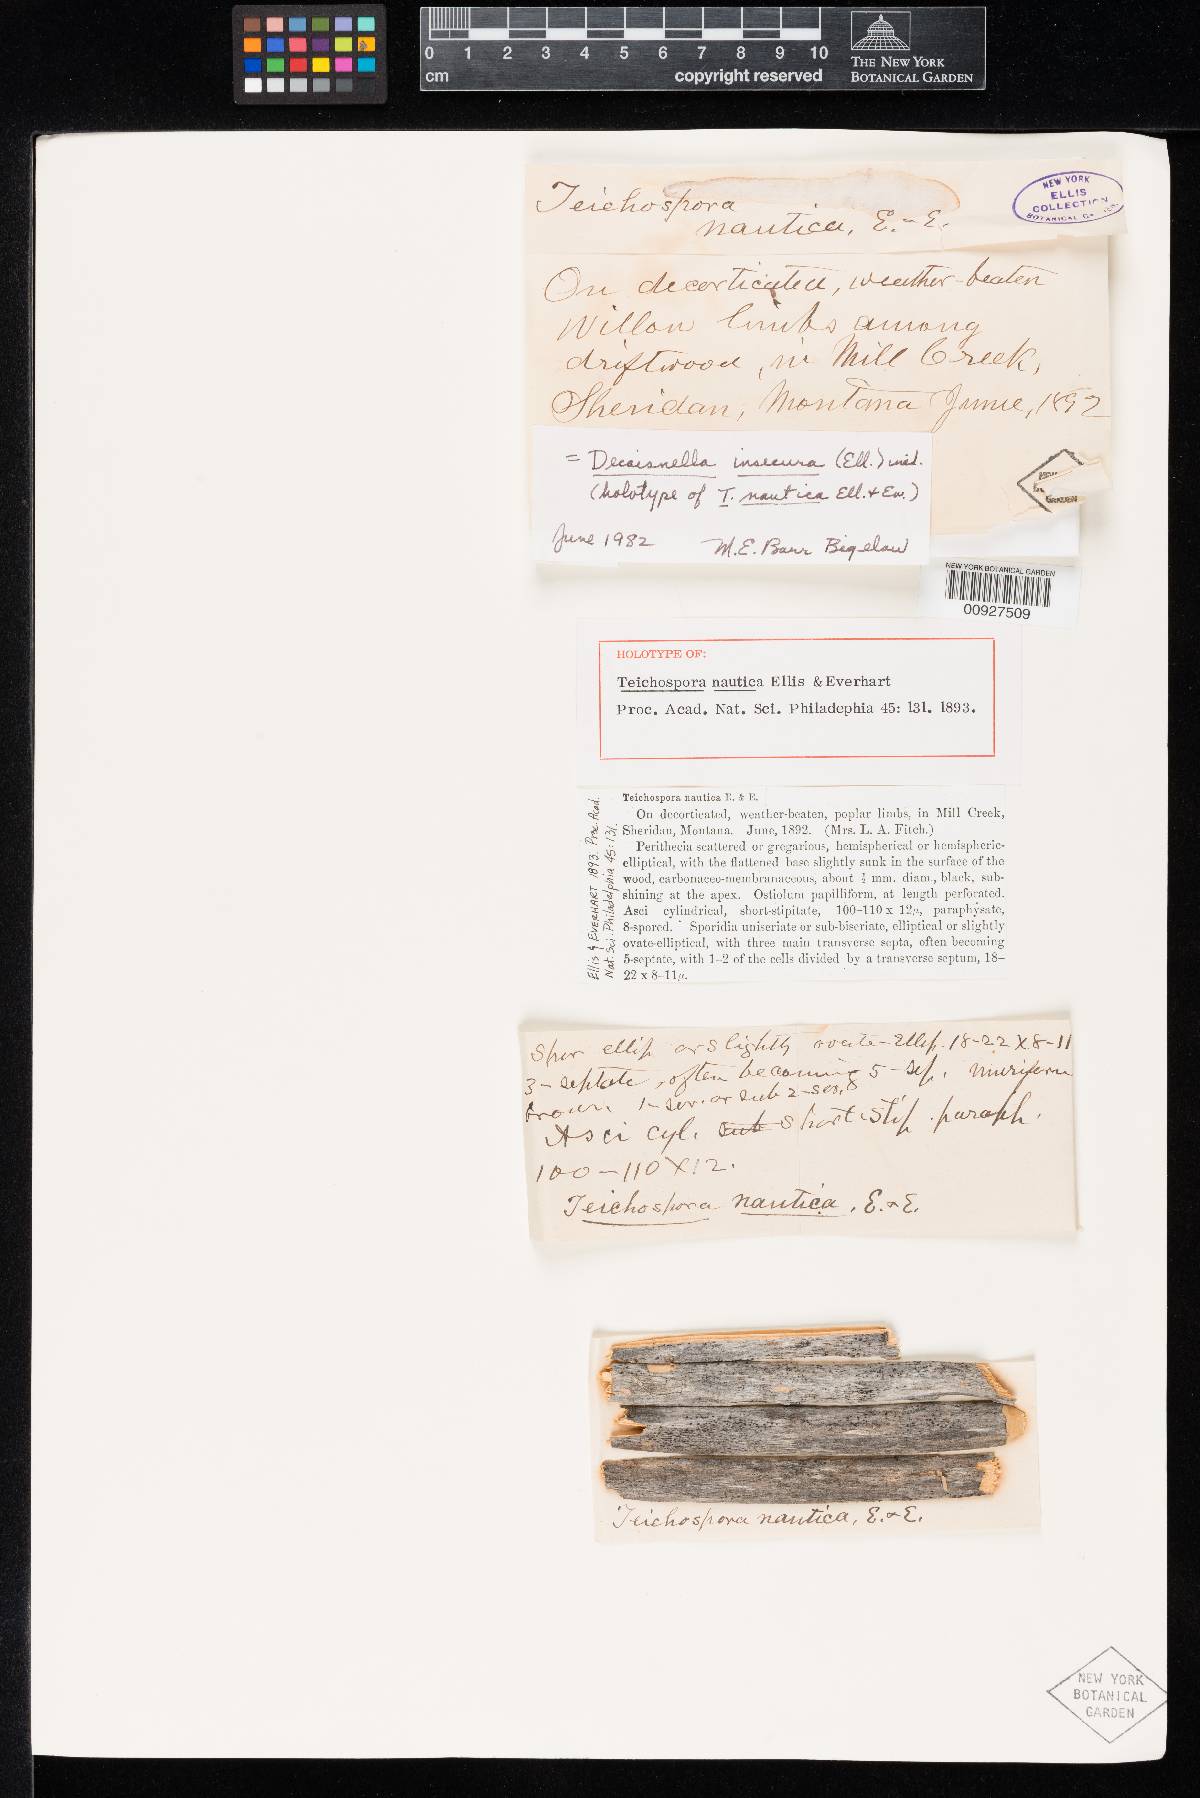 0 1 2 3 4 5 6 7 8 9 10
cm
copyright reserved
THE NEW YORK
BOTANICAL GARDEN
Teichospora
nautica, E. & E.
NEW YORK
ELLIS
COLLECTION
BOTANICAL
On decorticated, weather-beaten
Willow limbs among
driftwood, in Mill Creek,
Sheridan, Montana June, 1892
= Decaisnella insecura (Ell.) ined.
(holotype of T. nautica Ell. & Ev.)
June 1982 M.E. Barr Bigelow
GARDEN
NEW YORK BOTANICAL GARDEN
00927509
HOLOTYPE OF:
Teichospora nautica Ellis & Everhart
Proc. Acad. Nat. Sci. Philadephia 45: 131. 1893.
Ellis & EVERHART 1893. Proc. Acad.
Nat. Sci. Philadelphia 45: 131.
Teichospora nautica E. & E.
On decorticated, weather-beaten, poplar limbs, in Mill Creek,
Sheridan, Montana. June, 1892. (Mrs. L. A. Fitch.)
Perithecia scattered or gregarious, hemispherical or hemispheric-
elliptical, with the flattened base slightly sunk in the surface of the
wood, carbonaceo-membranaceous, about ½ mm. diam., black, sub-
shining at the apex. Ostiolum papilliform, at length perforated.
Asci cylindrical, short-stipitate, 100–110 x 12µ, paraphysate,
8-spored. Sporidia uniseriate or sub-biseriate, elliptical or slightly
ovate-elliptical, with three main transverse septa, often becoming
5-septate, with 1–2 of the cells divided by a transverse septum, 18–
22 x 8–11µ.
Spor ellip or slightly ovate-ellip. 18-22 X 8-11
3-septate, often becoming 5-sep. muriform
brown 1-ser. or sub 2-ser.
Asci cyl. sub short stip. paraph.
100-110 X 12.
Teichospora nautica, E. & E.
Teichospora nautica, E. & E.
NEW YORK
BOTANICAL
GARDEN